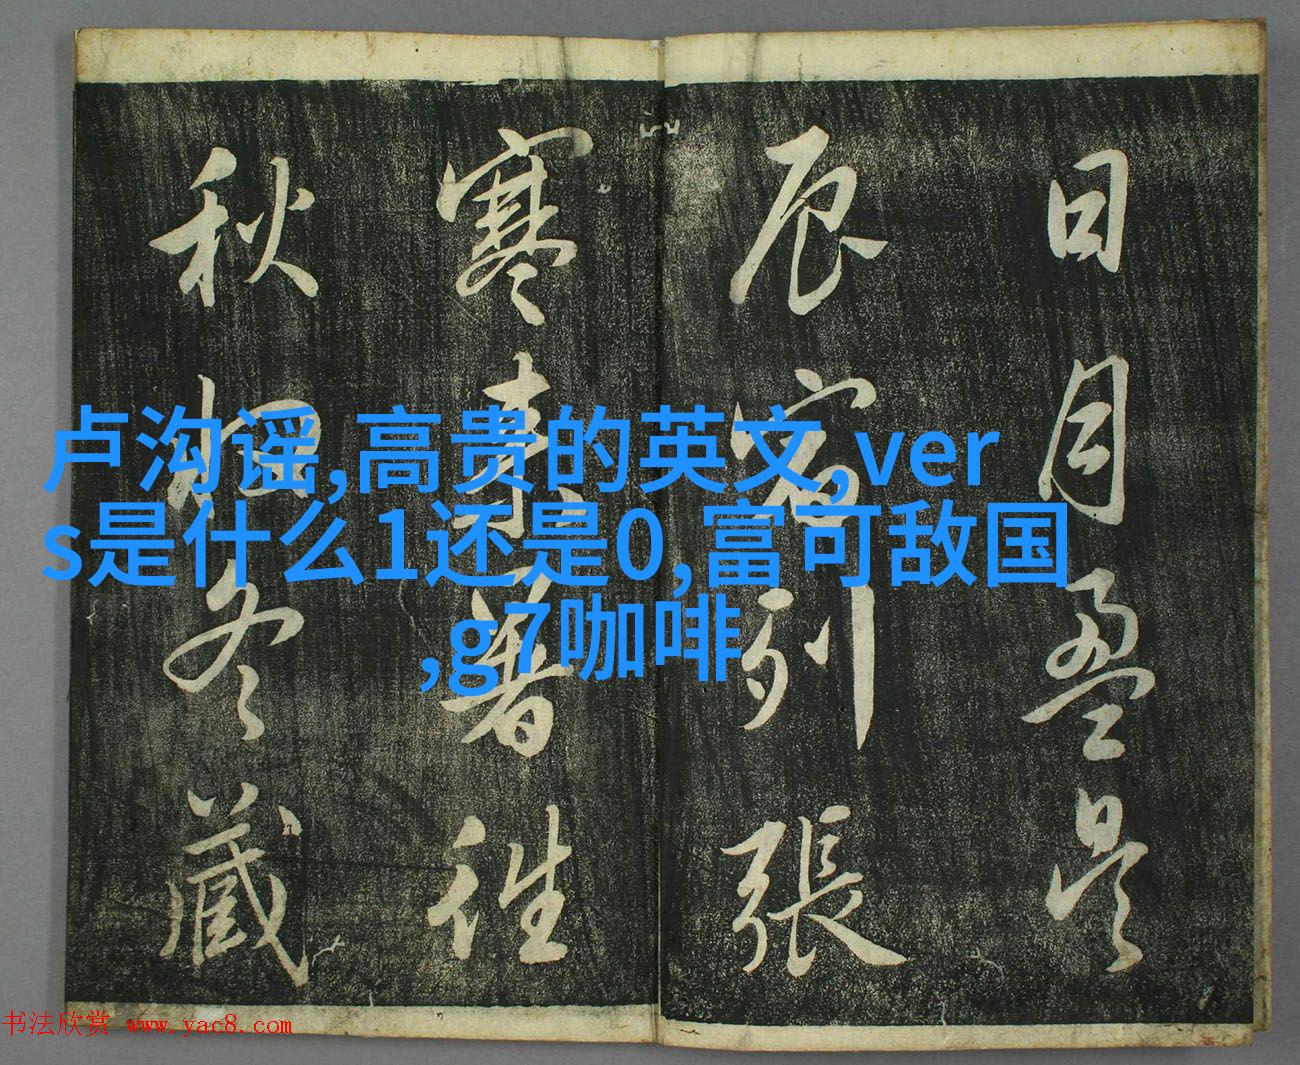 日月盈昃
辰宿列張
寒来暑往
秋收冬藏
卢沟谣,高贵的英文,ver
s是什么1还是0,富可敌国
,g7咖啡
书法欣赏 www.yac8.com